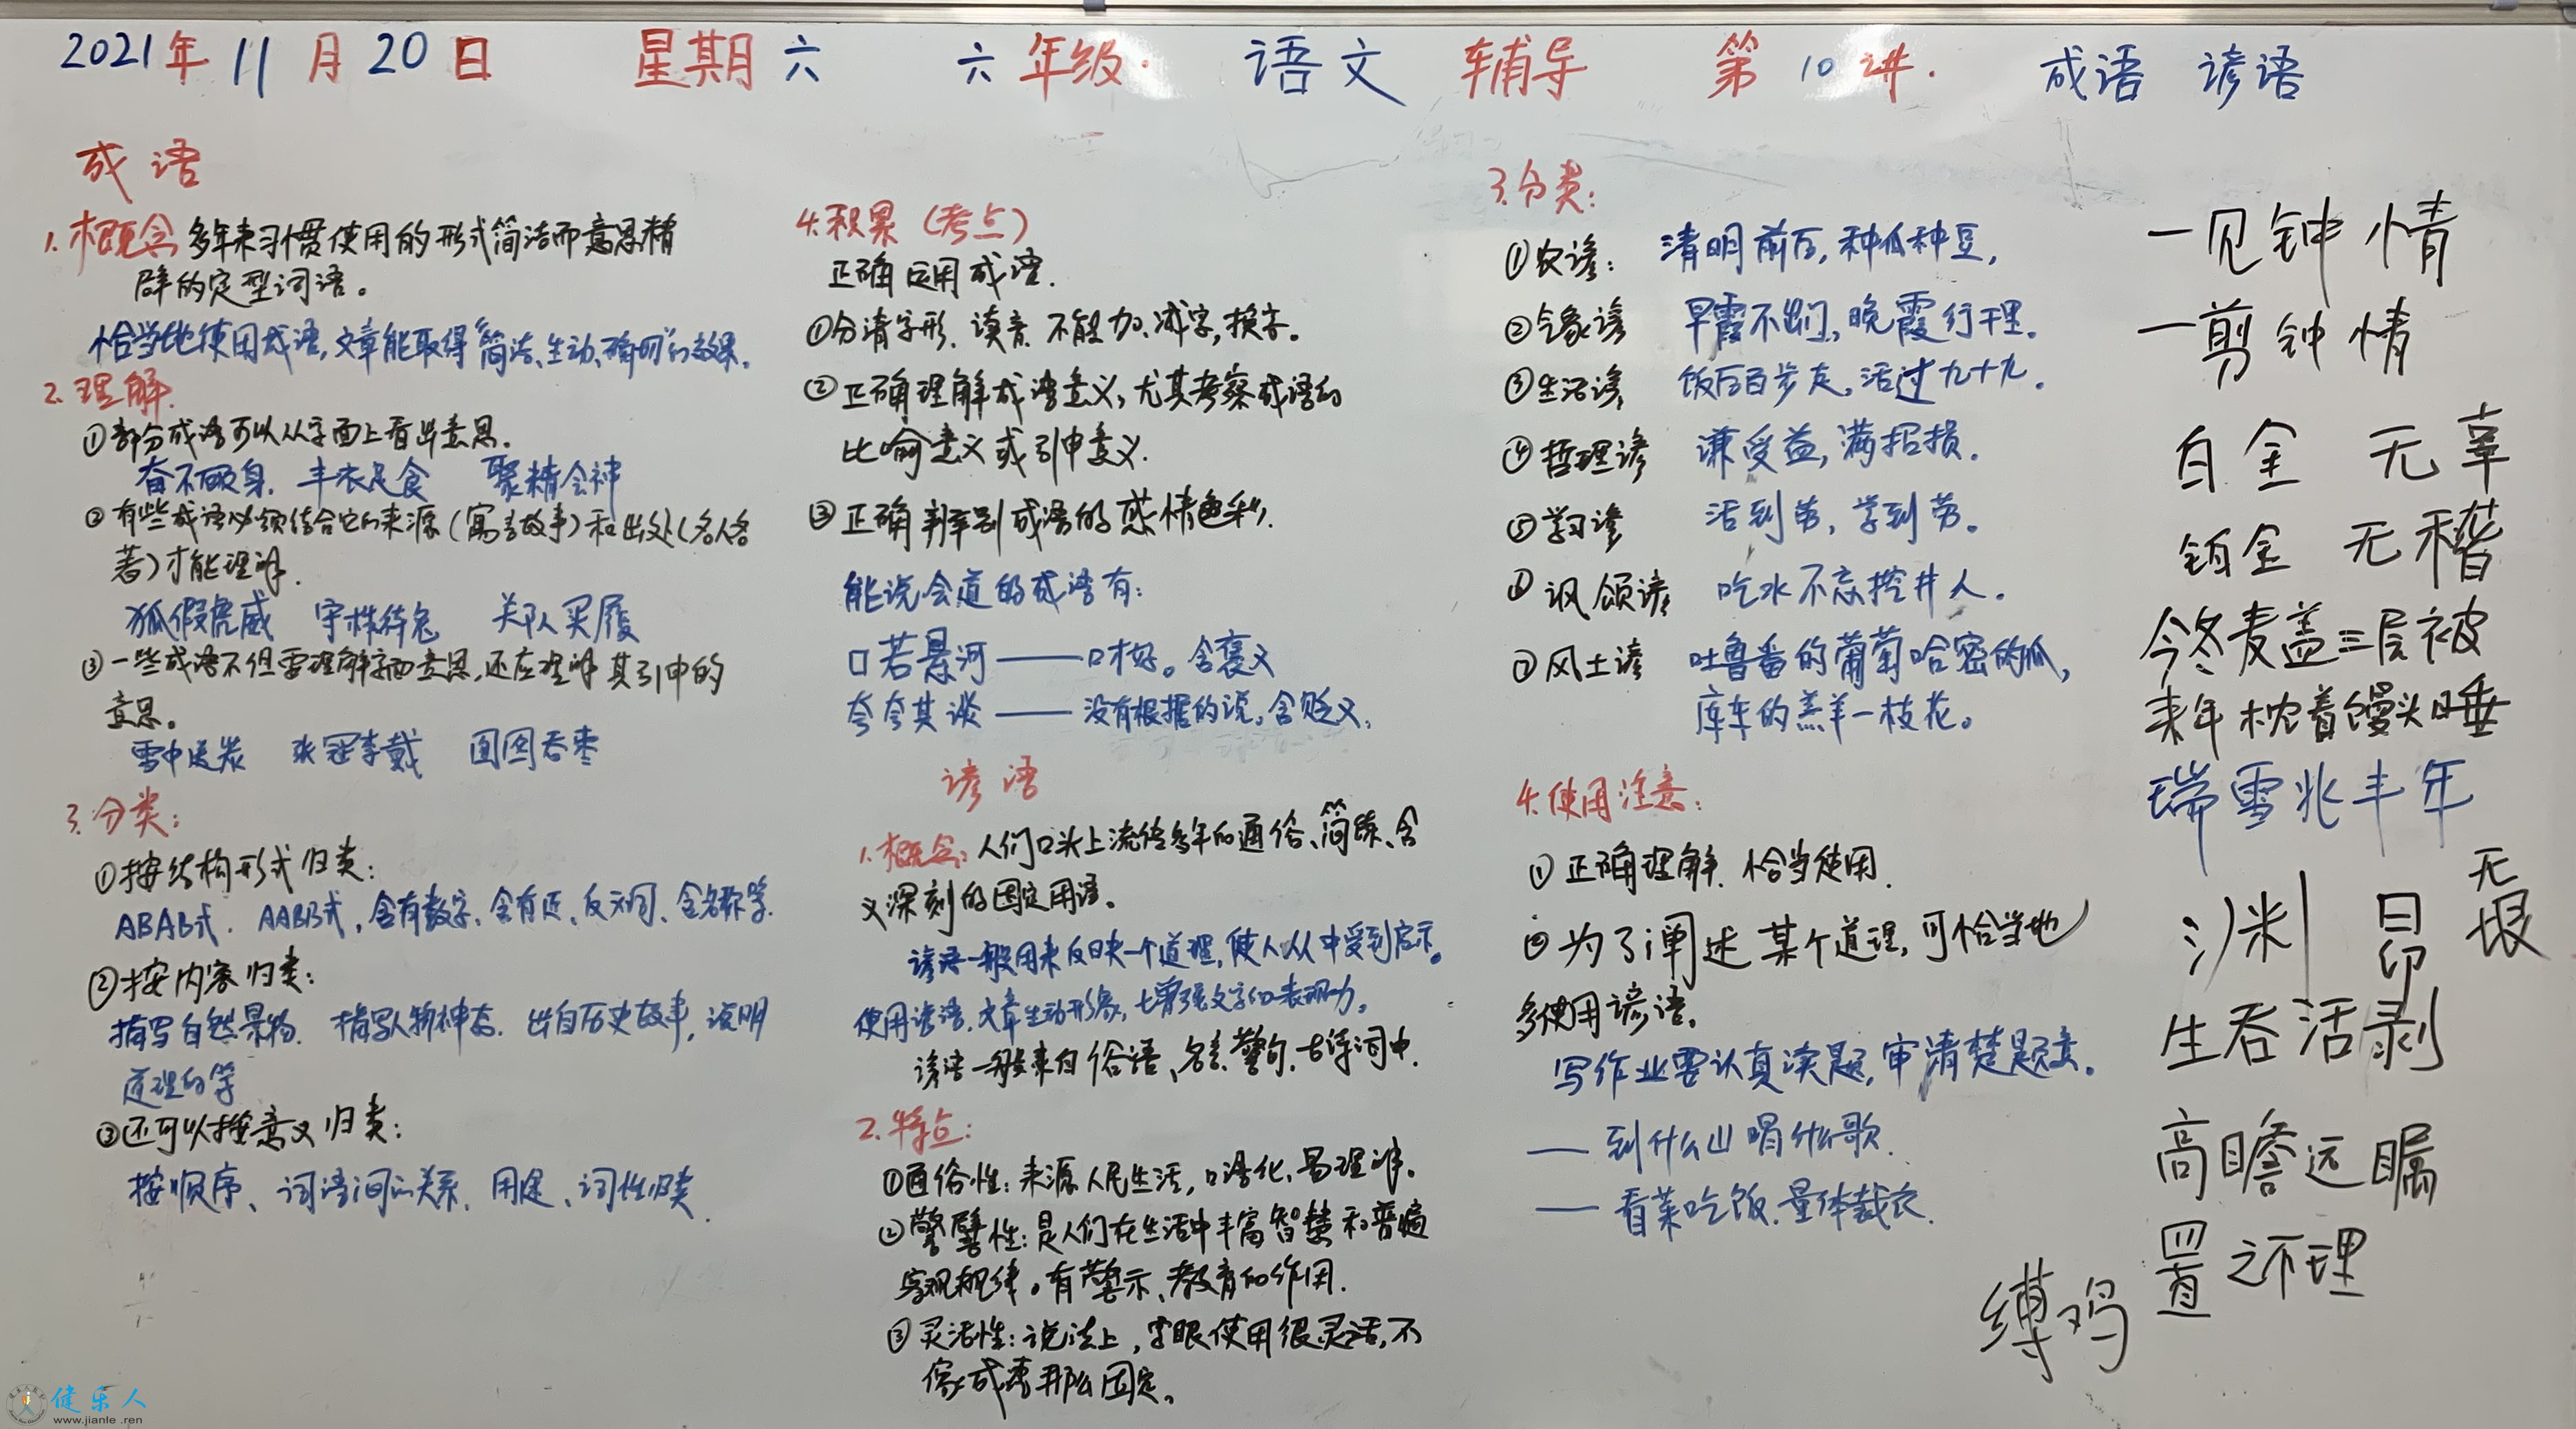 2021年11月20日 星期六 六年级. 语文 辅导 第10讲. 成语 谚语
成语
1.概念 多年来习惯使用的形式简洁而意思精
辟的定型词语。
恰当地使用成语,文章能取得“简洁、生动、确切”的效果。
2.理解.
①部分成语可以从字面上看出意思.
奋不顾身. 丰衣足食 聚精会神
②有些成语必须结合它的来源(寓言故事)和出处(名人名
著)才能理解.
狐假虎威 守株待兔 买履
③一些成语不但需理解字面意思,还应理解其引申的
意思。
雪中送炭 张冠李戴 囫囵吞枣
3.分类:
①按结构形式归类:
ABAB式. AABB式,含有数字、含有近、反义词、含名称等.
②按内容归类:
描写自然景物. 描写人物神态. 出自历史故事,说明
道理的等
③还可以按意义归类:
按顺序、词语间的关系、用途、词性归类.
4.积累(考点)
正确运用成语.
①分清字形、读音 不能加、减字,换字。
②正确理解成语意义,尤其考察成语的
比喻意义或引申意义.
③正确辨别成语的感情色彩.
能说会道的成语有:
口若悬河——口才好。含褒义
夸夸其谈——没有根据的说,含贬义.
谚语
1.概念:人们口头上流传多年的通俗、简练、含
义深刻的固定用语。
谚语一般用来反映一个道理,使人从中受到启示。
使用谚语,文章生动形象,增强文字的表现力。
谚语一般来自俗语、名言、警句.古诗词中.
2.特点:
①通俗性:来源人民生活,口语化、易理解。
②警醒性:是人们在生活中丰富智慧和普遍
客观规律。有警示、教育的作用.
③灵活性:说法上,字眼使用很灵活,不
像成语那么固定。
3.分类:
①农谚: 清明前后,种瓜种豆,
②气象谚 早霞不出门,晚霞行千里.
③生活谚, 饭后百步走,活过九十九.
④哲理谚 谦受益,满招损.
⑤学习谚 活到老,学到老。
⑥讽颂谚, 吃水不忘挖井人.
⑦风土谚 吐鲁番的葡萄哈密的瓜,
库车的羔羊一枝花。
4.使用注意:
①正确理解.恰当使用.
②为了阐述某个道理,可恰当地
多使用谚语.
写作业要认真读题,审清楚题意.
——到什么山唱什么歌.
——看菜吃饭.量体裁衣.
一见钟情
一剪钟情
白金 无辜
铂金 无稽
今冬麦盖三层被
来年枕着馒头睡
瑞雪兆丰年
渊 昂 无垠
生吞活剥
高瞻远瞩
置之不理
缚鸡
健乐人
www.jianle.ren